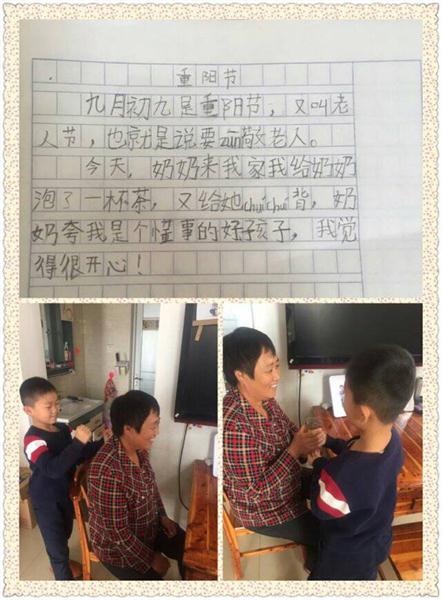 重阳节
九月初九是重阳节，又叫老
人节，也就是说要zūn敬老人。
今天，奶奶来我家我给奶奶
泡了一杯茶，又给她chuíchuí背，奶
奶夸我是个懂事的好孩子，我觉
得很开心！